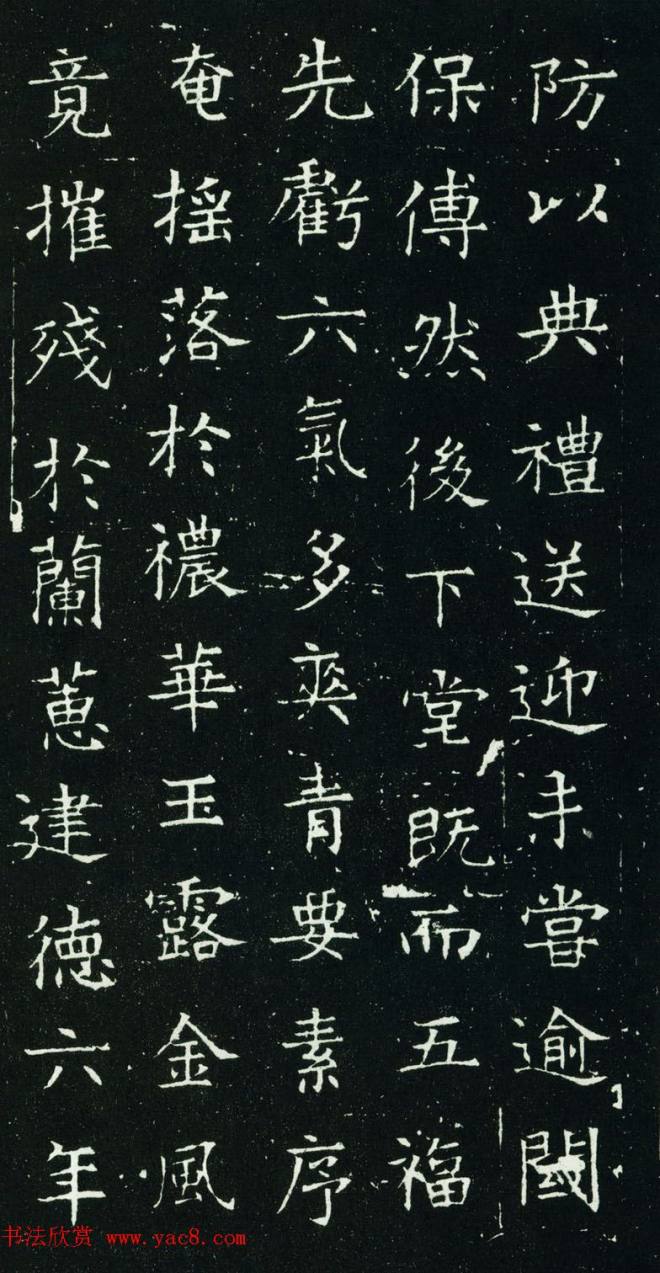 防以典禮送迎未嘗逾閾
保傅然後下堂既而五福
先虧六氣多爽青要素序
奄摇落於穠華玉露金風
竟摧殘於蘭蕙建德六年
书法欣赏 www.yac8.com